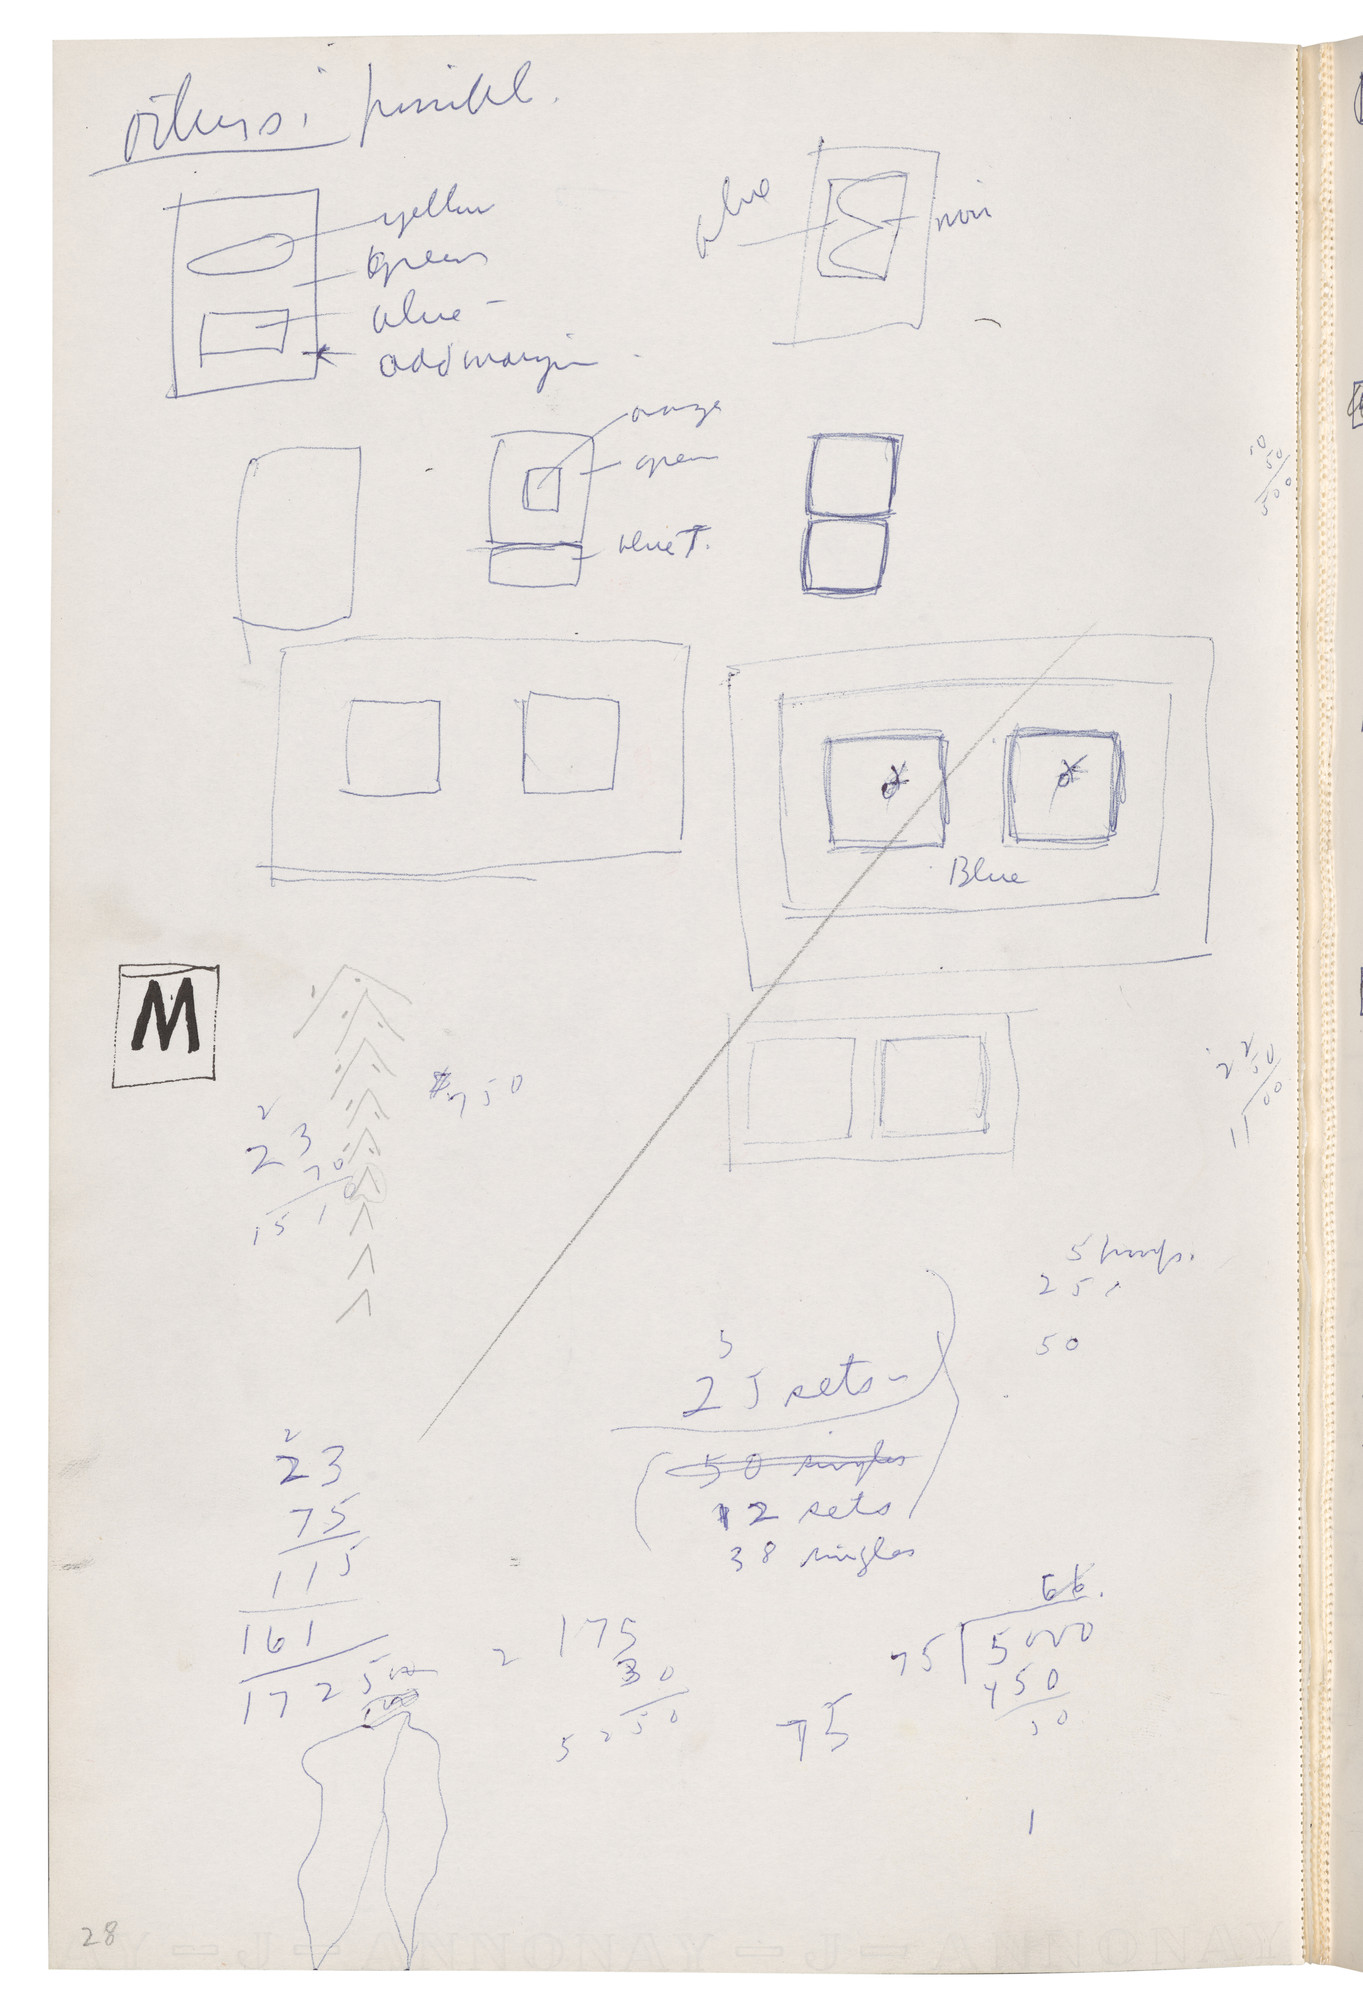 others: possibl.
yellow
green
blue –
add margin
blue
noir
orange
green
blue T.
10
50
500
Blue
M
$750
2
23
70
1510
22
50
1100
5
25
50
5
25 sets –
50 singles
12 sets
38 singles
2
23
75
115
161
1725
175
30
5250
75
66.
75 5000
450
50
1
28
J – ANNONAY – J – ANNONAY